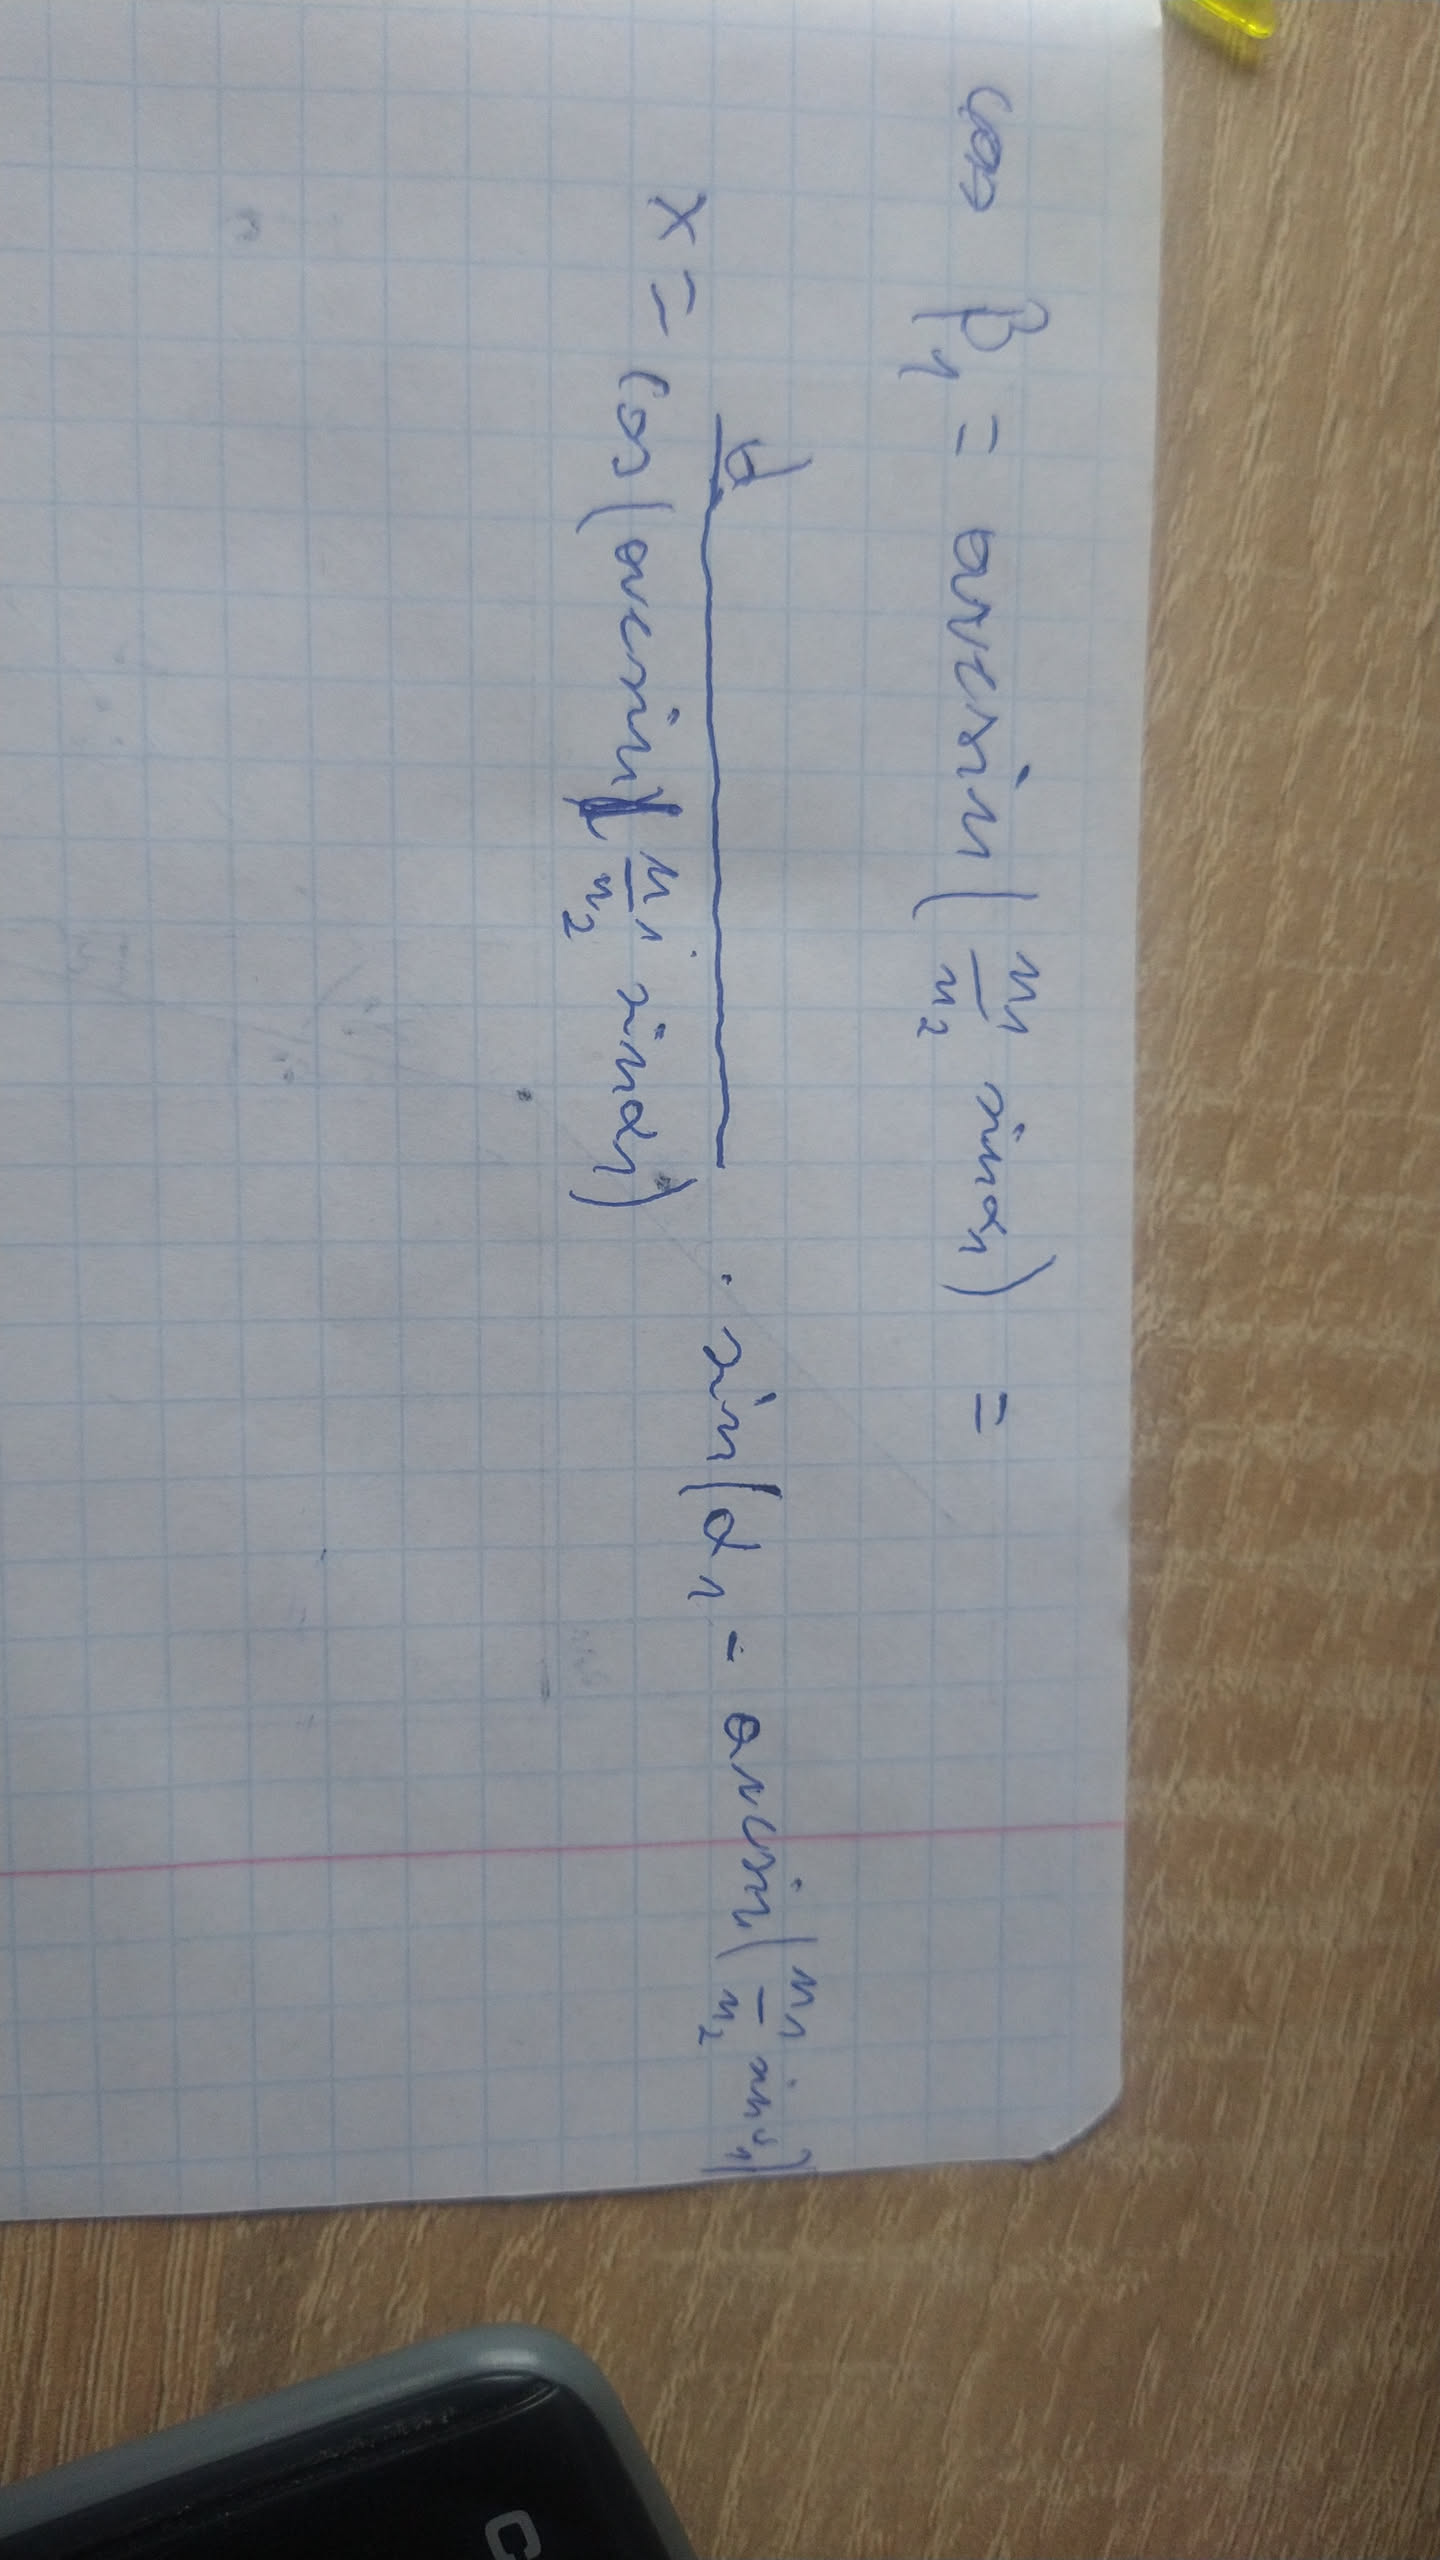 cos β₁ = arcsin(n₁/n₂ sinα₁) =
x = d/cos(arcsin(n₁/n₂ · sinα₁) · sin(α₁ - arcsin(n₁/n₂ sinα₁))